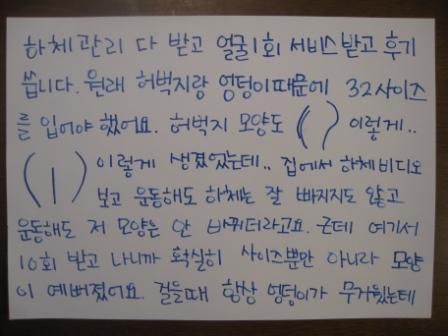 하체관리 다 받고 얼굴1회 서비스받고 후기
씁니다. 원래 허벅지랑 엉덩이때문에 32사이즈
를 입어야 했어요. 허벅지 모양도 ( ) 이렇게..
( | ) 이렇게 생겼었는데.. 집에서 하체비디오
보고 운동해도 하체는 잘 빠지지도 않고
운동해도 저 모양은 안 바뀌더라고요. 근데 여기서
10회 받고 나니까 확실히 사이즈뿐만 아니라 모양
이 예뻐졌어요. 걸을때 항상 엉덩이가 무거웠는데